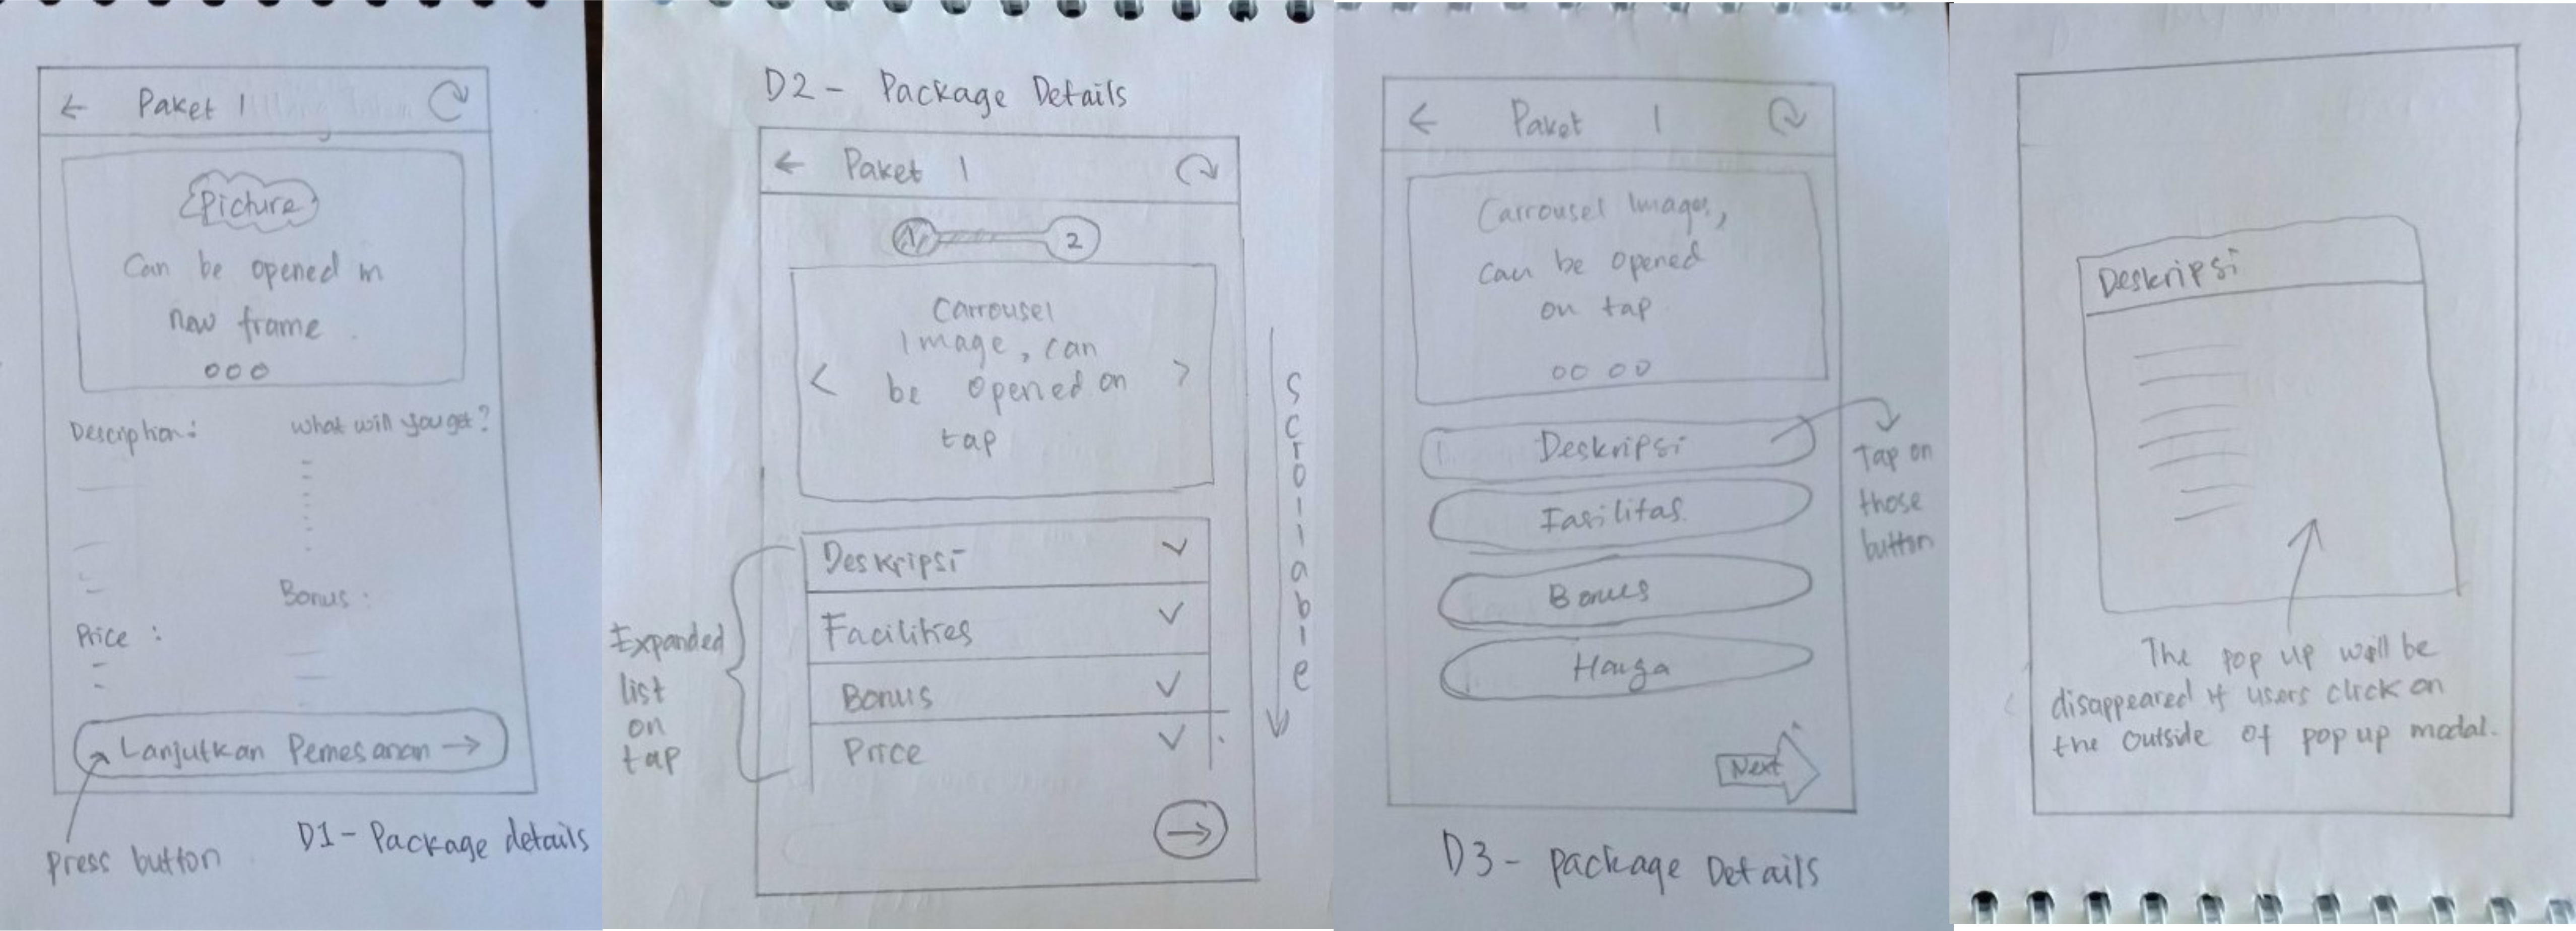 Paket 1
Picture
Can be opened in
new frame
Description:
what will you get?
Bonus :
Price :
Lanjutkan Pemesanan →
press button
D1 - Package details
D2 - Package Details
← Paket 1
1
2
Carrousel
Image, can
< be opened on >
tap
Deskripsi
Facilities
Bonus
Price
Expanded
list
on
tap
Scrollable
← Paket 1
Carrousel Images,
can be opened
on tap
Deskripsi
Fasilitas
Bonus
Harga
Next
Tap on
those
button
D3 - Package Details
Deskripsi
The pop up will be
disappeared if users click on
the outside of pop up modal.